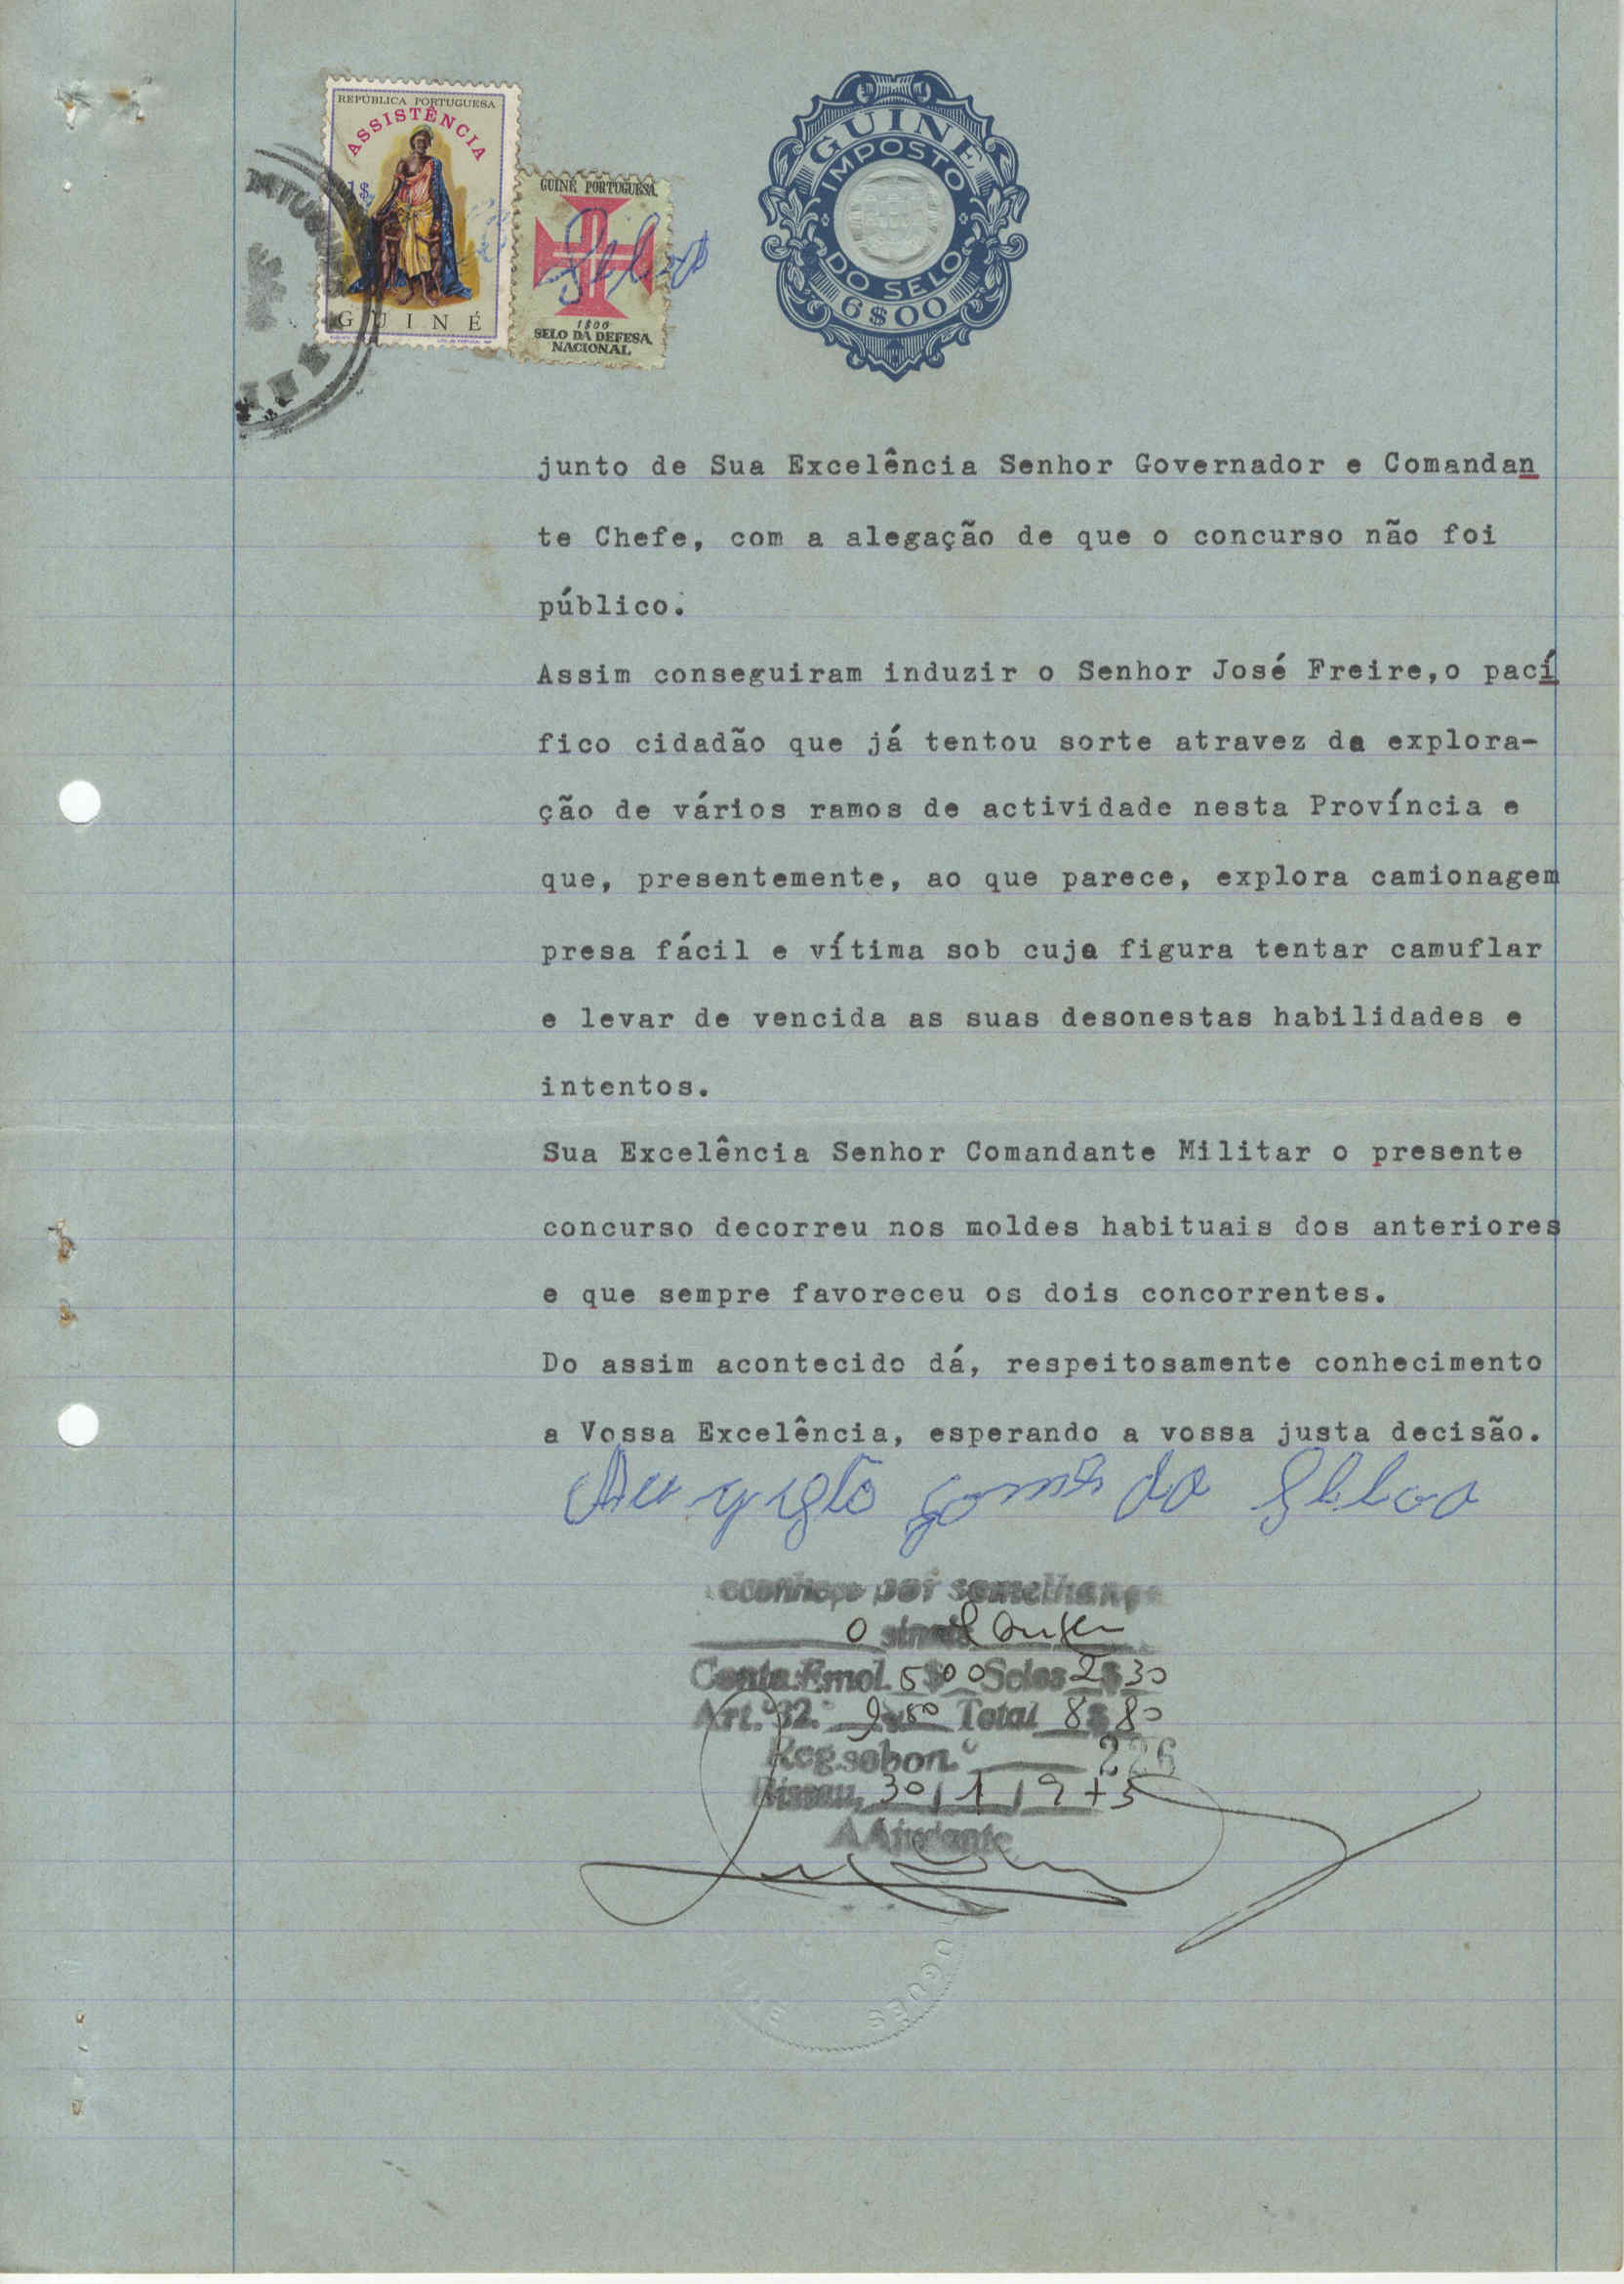 REPÚBLICA PORTUGUESA
ASSISTÊNCIA
1$
GUINÉ
GUINÉ PORTUGUESA
1$00
SELO DA DEFESA
NACIONAL
GUINÉ
IMPOSTO
DO SELO
6$00
junto de Sua Excelência Senhor Governador e Comandan
te Chefe, com a alegação de que o concurso não foi
público.
Assim conseguiram induzir o Senhor José Freire,o pací
fico cidadão que já tentou sorte atravez da explora-
ção de vários ramos de actividade nesta Província e
que, presentemente, ao que parece, explora camionagem
presa fácil e vítima sob cuja figura tentar camuflar
e levar de vencida as suas desonestas habilidades e
intentos.
Sua Excelência Senhor Comandante Militar o presente
concurso decorreu nos moldes habituais dos anteriores
e que sempre favoreceu os dois concorrentes.
Do assim acontecido dá, respeitosamente conhecimento
a Vossa Excelência, esperando a vossa justa decisão.
econheço por semelhança
o sinal
Conta: Emol. 5$00 Selos 2$30
Art.º 32.º Total 8$80
Reg. sob o n.º 226
Bissau, 30/1/973
A Ajudante